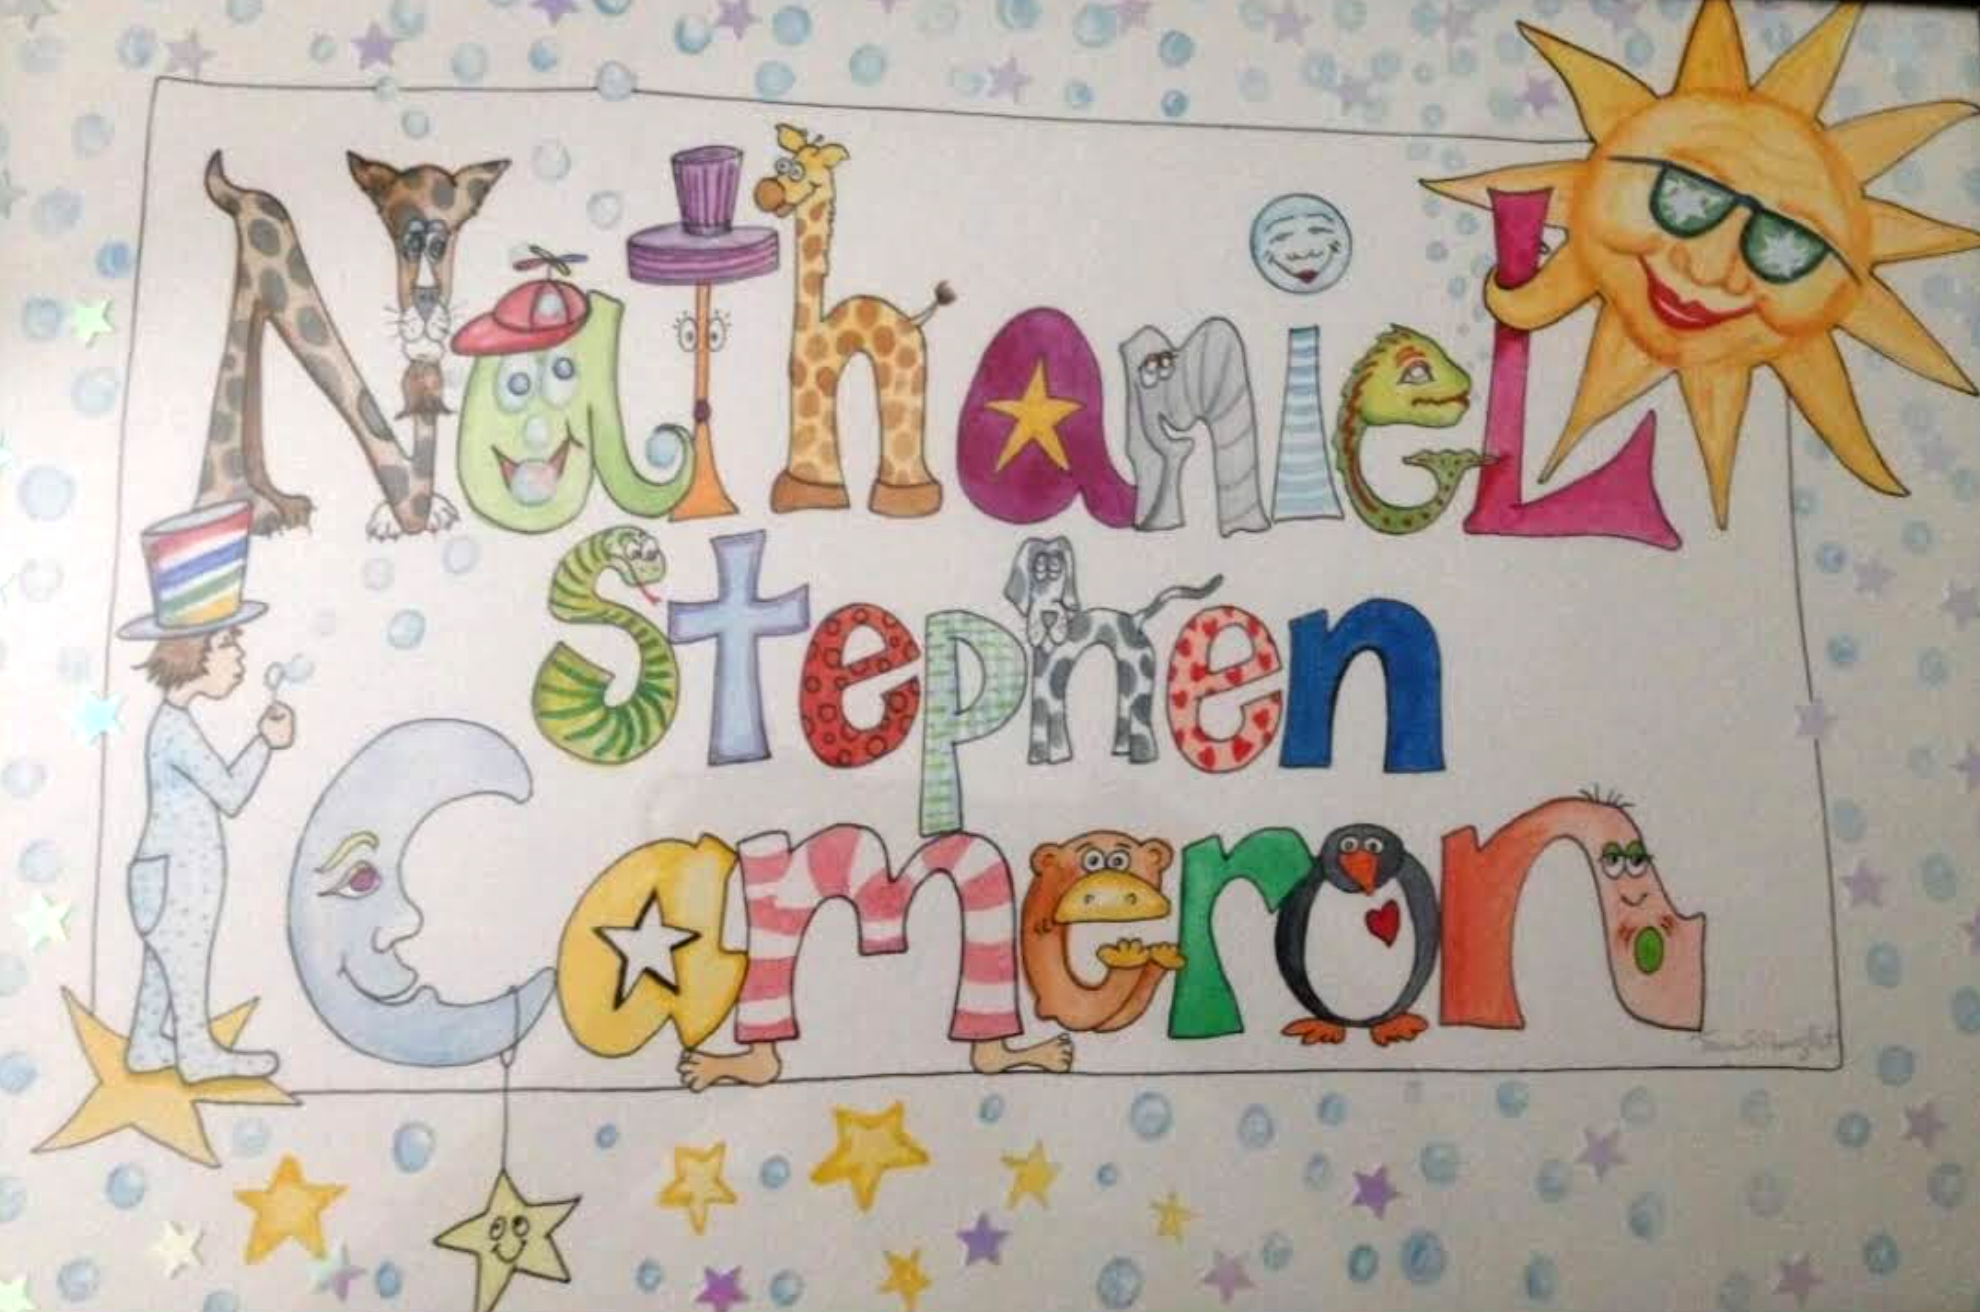 NathanieL
Stephen
Cameron